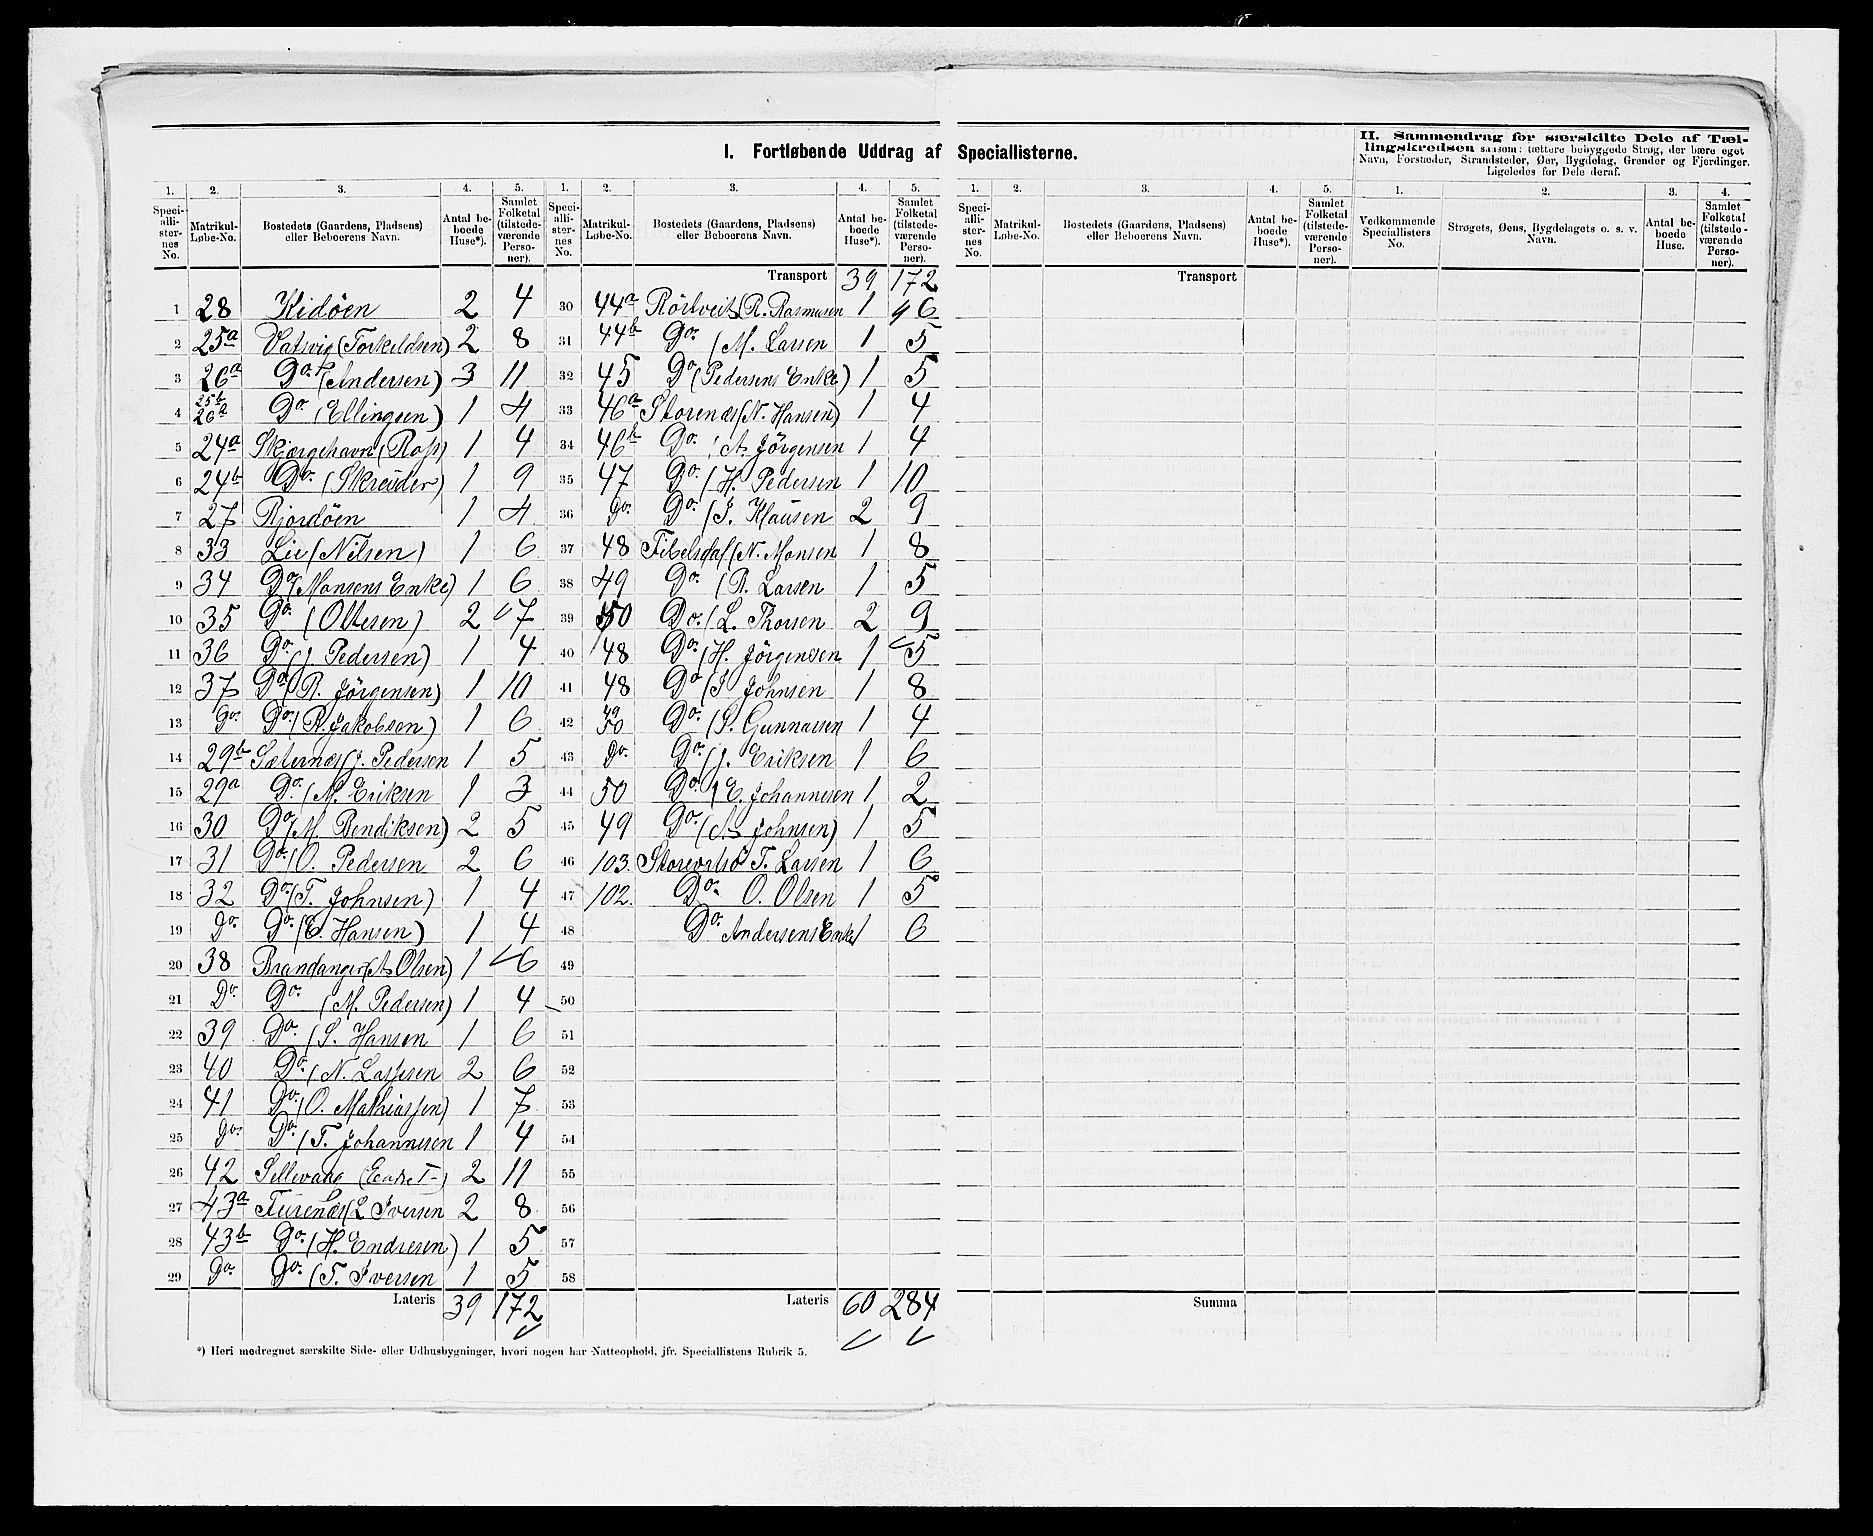 I. Fortløbende Uddrag af Speciallisterne.
II. Sammendrag for særskilte Dele af Tæl-
lingskredsen saasom: tættere bebyggede Strøg, der bære eget
Navn, Forstæder, Strandsteder, Øer, Bygdelag, Grender og Fjerdinger.
Ligeledes for Dele deraf.
1. 2. 3. 4. 5. 1. 2. 3. 4. 5. 1. 2. 3. 4. 5. 1. 2. 3. 4.
Speci-alli-ster-nes No. Matrikul-Løbe-No. Bostedets (Gaardens, Pladsens) eller Beboerens Navn. Antal be-boede Huse*). Samlet Folketal (tilstede-værende Perso-ner).
Speci-alli-ster-nes No. Matrikul-Løbe-No. Bostedets (Gaardens, Pladsens) eller Beboerens Navn. Antal be-boede Huse*). Samlet Folketal (tilstede-værende Perso-ner).
Speci-alli-ster-nes No. Matrikul-Løbe-No. Bostedets (Gaardens, Pladsens) eller Beboerens Navn. Antal be-boede Huse*). Samlet Folketal (tilstede-værende Perso-ner).
Vedkommende Speciallisters No. Strøgets, Øens, Bygdelagets o. s. v. Navn. Antal be-boede Huse. Samlet Folketal (tilstede-værende Perso-ner).
1 28 Kidöen 2 4
2 25a Vatsvig (Torkildsen) 2 8
3 26a Do. (Andersen) 3 11
4 25b 26a Do. (Ellingsen) 1 4
5 24a Skjærgehavn (Ross) 1 4
6 24b Do. (Skreuder) 1 9
7 27 1 4
8 33 Lie (Nilsen) 1 6
9 34 Do (Monsens Enke) 1 6
10 35 Do. (Oltesen) 2 7
11 36 Do. (J. Pedersen) 1 4
12 37 Do (R. Jörgensen) 1 10
13 Do. Do. (R. Jakobsen) 1 6
14 29b Sæternæs (J. Pedersen 1 5
15 29a Do. (N. Eriksen 1 3
16 30 Do (M. Bendiksen) 2 5
17 31 Do. (O. Pedersen 2 6
18 32 Do. (T. Johnsen) 1 4
19 Do. Do. (E. Hansen) 1 4
20 38 Brandanger (A. Olsen) 1 6
21 Do. Do. (M. Pedersen) 1 4
22 39 Do. (S. Hansen 1 6
23 40 Do. (N. Lassesen 2 6
24 41 Do. (O. Mathiassen) 1 7
25 Do. Do. (T. Johannesen 1 4
26 42 Sellevaag (Endre T-) 2 11
27 43a Furenæs (L Iversen 2 8
28 43b Do. (H. Endresen) 1 5
29 Do. Do. (T. Iversen 1 5
Lateris 39 172
Transport 39 172
30 44a Rörtveit (R. Rasmusen 1 6
31 44b Do. (M. Larsen 1 5
32 45 Do (Pedersens Enke) 1 5
33 46a Storenæs (N. Hansen) 1 4
34 46b Do. (A. Jörgensen 1 4
35 47 Do. (H. Pedersen 1 10
36 Do. Do. (J. Klausen 2 9
37 48 (N. Monsen 1 8
38 49 Do. (R. Larsen 1 5
39 50 Do. (L. Thorsen 2 9
40 48 Do. (H. Jörgensen 1 5
41 48 Do (J Johnsen 1 8
42 49 50 Do. (S. Gunnarsen 1 4
43 Do. Do. (J. Eriksen 1 6
44 50 Do. (E. Johannesen 1 2
45 49 Do. (A. Johnsen) 1 5
46 103. T. Larsen 1 6
47 102. Do. O. Olsen 1 5
48 Do. Andersens Enke 1 6
49
50
51
52
53
54
55
56
57
58
Lateris 60 284
Transport
Summa
*) Heri medregnet særskilte Side- eller Udhusbygninger, hvori nogen har Natteophold, jfr. Speciallistens Rubrik 5.